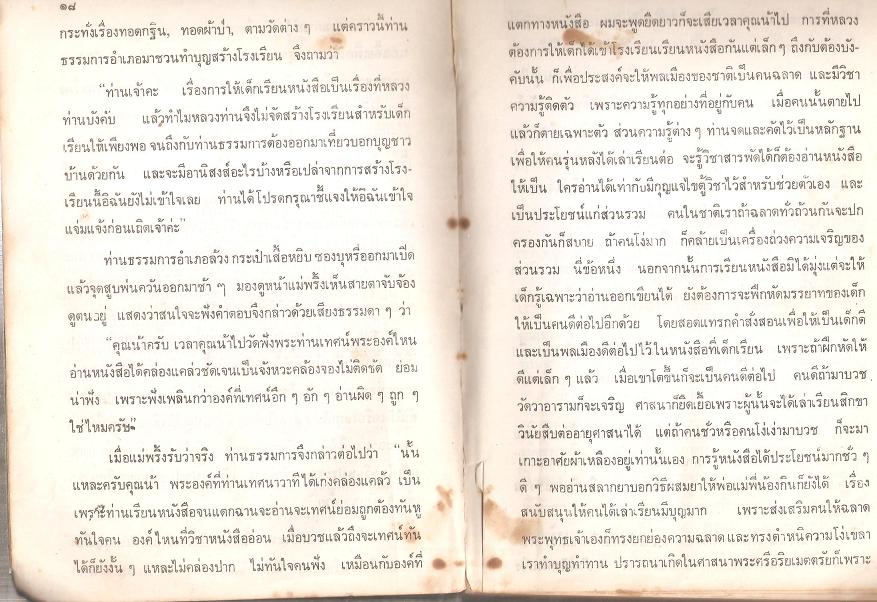 ๑๘
กระทั่งเรื่องทอดกฐิน, ทอดผ้าป่า, ตามวัดต่าง ๆ แต่คราวนี้ท่าน
ธรรมการอำเภอมาชวนทำบุญสร้างโรงเรียน จึงถามว่า
"ท่านเจ้าคะ เรื่องการให้เด็กเรียนหนังสือเป็นเรื่องที่หลวง
ท่านบังคับ แล้วทำไมหลวงท่านจึงไม่จัดสร้างโรงเรียนสำหรับเด็ก
เรียนให้เพียงพอ จนถึงกับท่านธรรมการต้องออกมาเที่ยวบอกบุญชาว
บ้านด้วยกัน และจะมีอานิสงส์อะไรบ้างหรือเปล่าจากการสร้างโรง-
เรียนนี้อิฉันยังไม่เข้าใจเลย ท่านได้โปรดกรุณาชี้แจงให้อิฉันเข้าใจ
แจ่มแจ้งก่อนเถิดเจ้าค่ะ"
ท่านธรรมการอำเภอล้วง กระเป๋าเสื้อหยิบ ซองบุหรี่ออกมาเปิด
แล้วจุดสูบพ่นควันออกมาช้า ๆ มองดูหน้าแม่พริ้งเห็นสายตาจับจ้อง
ดูตนอยู่ แสดงว่าสนใจจะฟังคำตอบจึงกล่าวด้วยเสียงธรรมดา ๆ ว่า
"คุณน้าครับ เวลาคุณน้าไปวัดฟังพระท่านเทศน์พระองค์ไหน
อ่านหนังสือได้คล่องแคล่วชัดเจนเป็นจังหวะคล้องจองไม่ติดขัด ย่อม
น่าฟัง เพราะฟังเพลินกว่าองค์ที่เทศน์อึก ๆ อัก ๆ อ่านผิด ๆ ถูก ๆ
ใช่ไหมครับ"
เมื่อแม่พริ้งรับว่าจริง ท่านธรรมการจึงกล่าวต่อไปว่า "นั้น
แหละครับคุณน้า พระองค์ที่ท่านเทศนาวาทีได้เก่งคล่องแคล้ว เป็น
เพราะท่านเรียนหนังสือจนแตกฉานจะอ่านจะเทศน์ย่อมถูกต้องทันหู
ทันใจคน องค์ไหนที่วิชาหนังสืออ่อน เมื่อบวชแล้วถึงจะเทศน์ทัน
ได้ก็ยังงั้น ๆ แหละไม่คล่องปาก ไม่ทันใจคนฟัง เหมือนกับองค์ที่
แตกทางหนังสือ ผมจะพูดยืดยาวก็จะเสียเวลาคุณน้าไป การที่หลวง
ต้องการให้เด็กได้เข้าโรงเรียนเรียนหนังสือกันแต่เล็กๆ ถึงกับต้องบัง-
คับนั้น ก็เพื่อประสงค์จะให้พลเมืองของชาติเป็นคนฉลาด และมีวิชา
ความรู้ติดตัว เพราะความรู้ทุกอย่างที่อยู่กับคน เมื่อคนนั้นตายไป
แล้วก็ตายเฉพาะตัว ส่วนความรู้ต่าง ๆ ท่านจดและคัดไว้เป็นหลักฐาน
เพื่อให้คนรุ่นหลังได้เล่าเรียนต่อ จะรู้วิชาสารพัดได้ก็ต้องอ่านหนังสือ
ให้เป็น ใครอ่านได้เท่ากับมีกุญแจไขตู้วิชาไว้สำหรับช่วยตัวเอง และ
เป็นประโยชน์แก่ส่วนรวม คนในชาติเราถ้าฉลาดทั่วถ้วนกันจะปก
ครองกันก็สบาย ถ้าคนโง่มาก ก็คล้ายเป็นเครื่องถ่วงความเจริญของ
ส่วนรวม นี่ข้อหนึ่ง นอกจากนั้นการเรียนหนังสือมิได้มุ่งแต่จะให้
เด็กรู้เฉพาะว่าอ่านออกเขียนได้ ยังต้องการจะฝึกหัดมรรยาทของเด็ก
ให้เป็นคนดีต่อไปอีกด้วย โดยสอดแทรกคำสั่งสอนเพื่อให้เป็นเด็กดี
และเป็นพลเมืองดีต่อไปไว้ในหนังสือที่เด็กเรียน เพราะถ้าฝึกหัดให้
ดีแต่เล็ก ๆ แล้ว เมื่อเขาโตขึ้นก็จะเป็นคนดีต่อไป คนดีถ้ามาบวช
วัดวาอารามก็จะเจริญ ศาสนาก็ยืดเยื้อเพราะผู้นั้นจะได้เล่าเรียนสิกขา
วินัยสืบต่ออายุศาสนาได้ แต่ถ้าคนชั่วหรือคนโง่เง่ามาบวช ก็จะมา
เกาะอาศัยผ้าเหลืองอยู่เท่านั้นเอง การรู้หนังสือได้ประโยชน์มากชั่ว ๆ
ดี ๆ พออ่านสลากยาบอกวิธีผสมยาให้พ่อแม่พี่น้องกินก็ยังได้ เรื่อง
สนับสนุนให้คนได้เล่าเรียนมีบุญมาก เพราะส่งเสริมคนให้ฉลาด
พระพุทธเจ้าเองก็ทรงยกย่องความฉลาด และทรงตำหนิความโง่เขลา
เราทำบุญทำทาน ปรารถนาเกิดในศาสนาพระศรีอริยเมตตรัยก็เพราะ